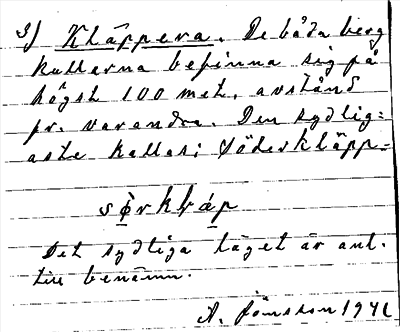 3) Kläppera. De båda berg
kullarna befinna sig på
högst 100 met. avstånd
fr. varandra. Den sydlig=
aste kallas: Söderkläpp=
Det sydliga läget är anl.
till benämn.
A. Jönsson 1941